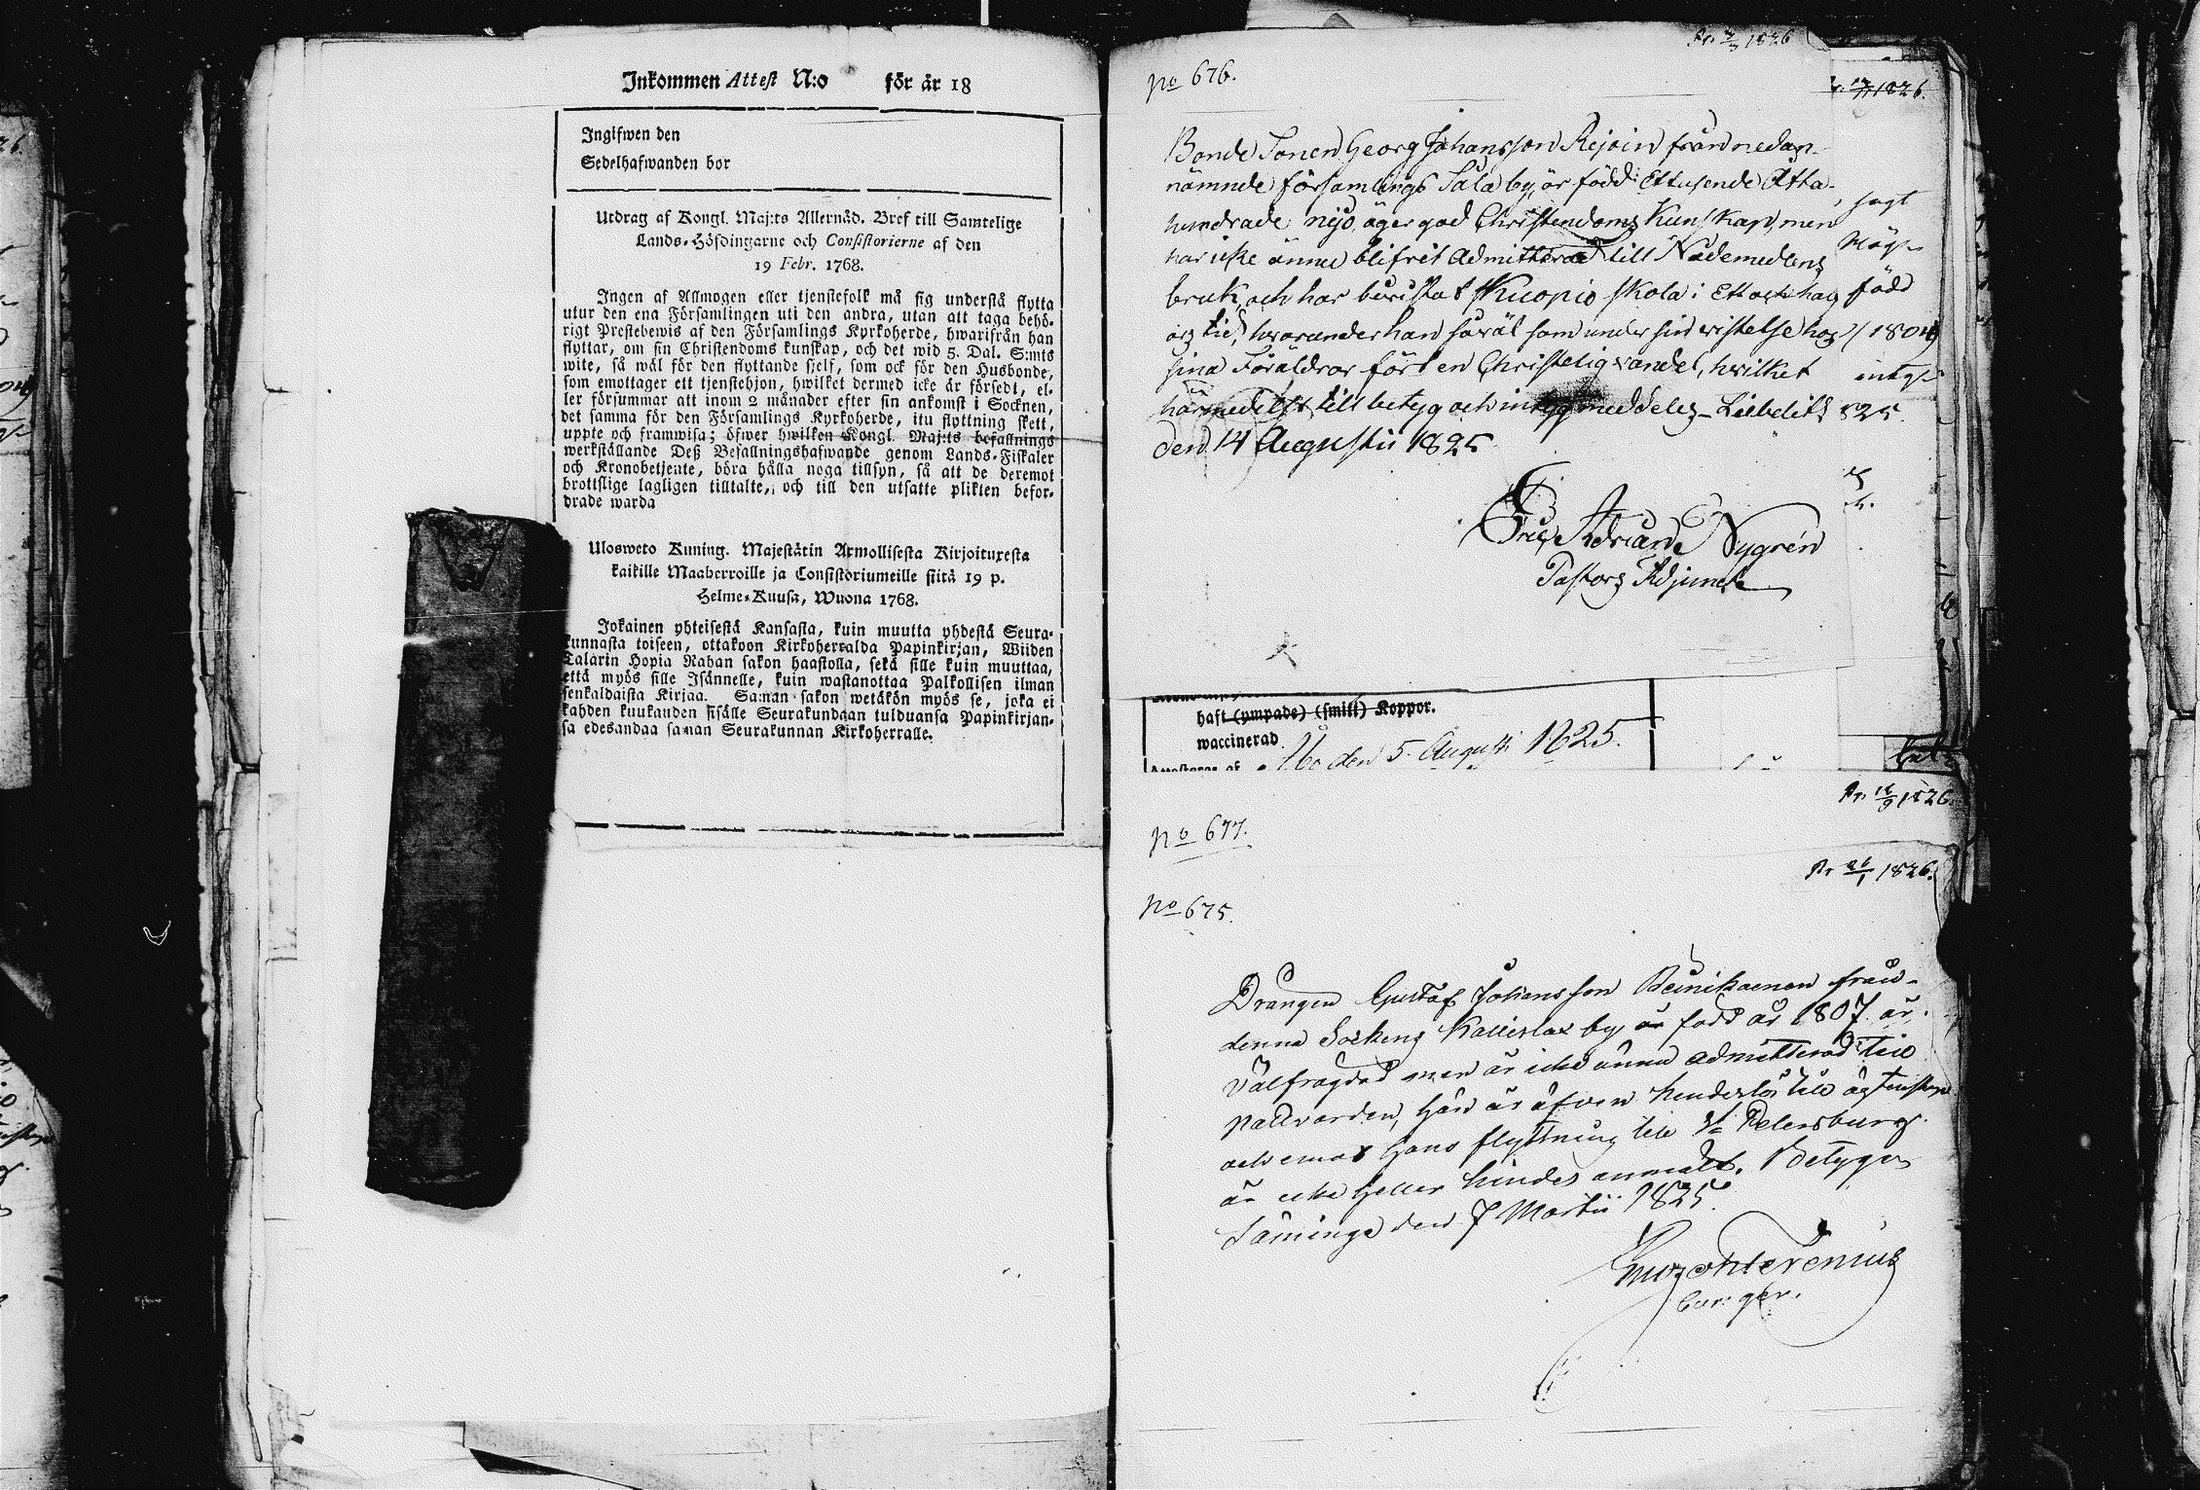 Inkommen Attest N:o för år 18
Ingifwen den
Sedelhafwanden bor
Utdrag af Kongl. Maj:ts Allernåd. Bref till Samtelige
Lands-Höfdingarne och Consistorierne af den
19 Febr. 1768.
Ingen af Allmogen eller tjenstefolk må sig understå flytta
utur den ena Församlingen uti den andra, utan att taga behö-
rigt Prestebewis af den Församlings Kyrkoherde, hwarifrån han
flyttar, om sin Christendoms kunskap, och det wid 5. Dal. S:mts
wite, så wäl för den flyttande sjelf, som ock för den Husbonde,
som emottager ett tjenstehjon, hwilket dermed icke är försedt, el-
ler försummar att inom 2 månader efter sin ankomst i Socknen,
det samma för den Församlings Kyrkoherde, itu flyttning skett,
uppte och framwisa; öfwer hwilken Kongl. Maj:ts befallnings
werkställande Deß Befallningshafwande genom Lands-Fiskaler
och Kronobetjente, böra hålla noga tillsyn, så att de deremot
brottslige lagligen tilltalte, och till den utsatte plikten befor-
drade warda
Ulosweto Kuning. Majestätin Armollisesta Kirjoituxesta
kaikille Maaherroille ja Consistoriumeille siitä 19 p.
Helme-Kuusa, Wuona 1768.
Jokainen yhteisestä Kansasta, kuin muutta yhdestä Seura-
kunnasta toiseen, ottakoon Kirkoherralda Papinkirjan, Wiiden
Talarin Hopia Rahan sakon haastolla, sekä sille kuin muuttaa,
että myös sille Isännelle, kuin wastanottaa Palkollisen ilman
senkaldaista Kirjaa. Saman sakon wetäkön myös se, joka ei
kahden kuukauden sisälle Seurakundaan tulduansa Papinkirjan-
sa edesandaa saman Seurakunnan Kirkoherralle.
1826
No 676.
1826.
Bonde Sonen Georg Johansson Rejoin från nedan-
nämnde församlings Sala by, är född Ettusende Åtta-
hundrade nijo, äger god Christendoms Kunskap, men
har icke ännu blifvit Admitterad till Nådemedlens
bruk, och har bevistat Kuopio skola i Ett och halft
års tid, hvarunder han såväl som under sin vistelse hos
sina Föräldrar fört en Christelig vandel, hvilket
härmedelst till betyg och intyg meddeles. Liebelitz
den 14 Augusti 1825
sagt
född
(1804)
intyg
825.
Eric Adrian Nygrén
Pastors Adjunct
haft (ympade) (smitt) Koppor.
waccinerad
Åbo den 5 Augusti 1825.
Pr. 16/9 1826.
No 677.
Pr 26/1 1826.
No 675.
Drängen Gustaf Johansson Reinikainen från
denna Sockens Kallislax by, är född år 1807. är
välfrägdad men är icke ännu admitterad till
Nattvarden, han är äfven hinderlös till ägtenskap
och emot hans flyttning till St Petersburg
är icke heller hinder anmäldt. Betygar
Säminge den 7 Martii 1825.